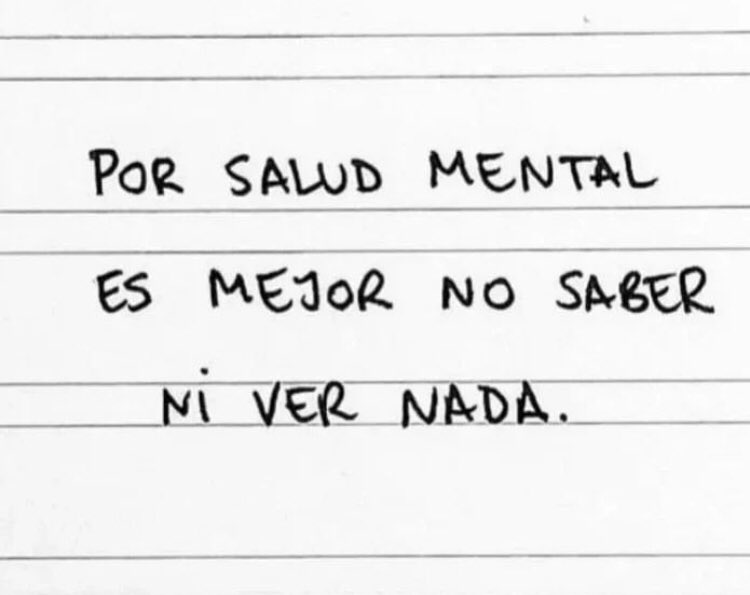 POR SALUD MENTAL
ES MEJOR NO SABER
Ni VER NADA.